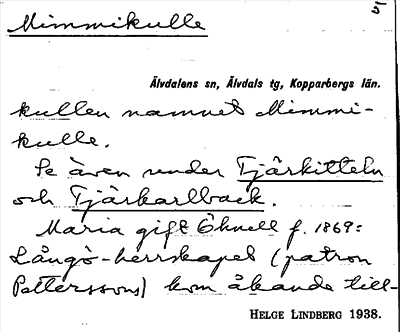 5
Mimmikulle
Älvdalens sn, Älvdals tg, Kopparbergs län.
kullen namnet Mimmi-
kulle.
Se även under Tjärkitteln
och Tjärkarlback.
Maria gift Öhnell f. 1869:
Långö-herrskapet (patron
Petterssons) kom åkande till-
HELGE LINDBERG 1938.